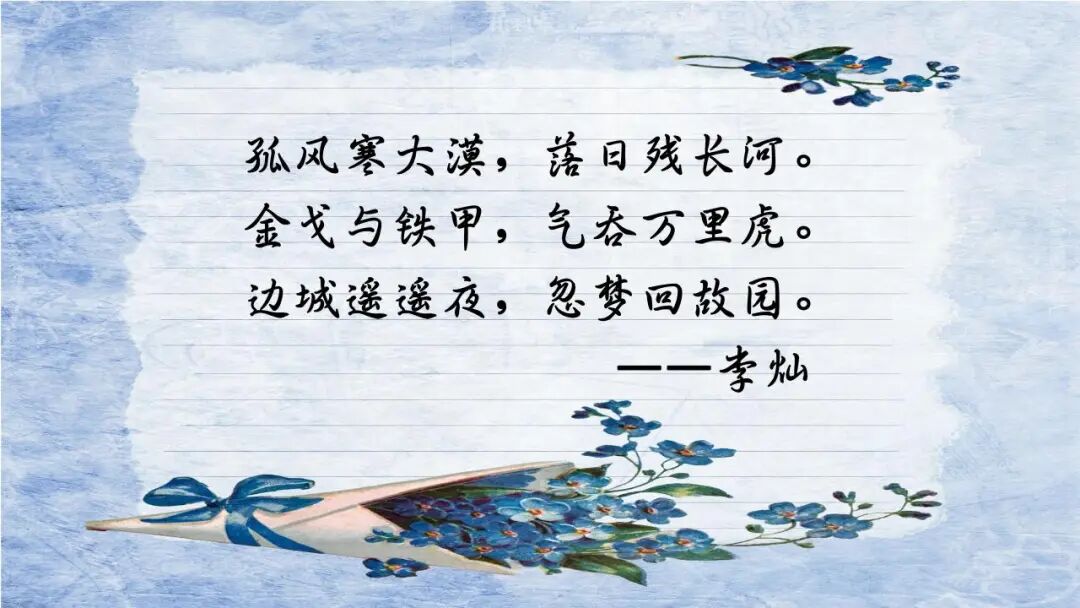 孤风寒大漠，落日残长河。
金戈与铁甲，气吞万里虎。
边城遥遥夜，忽梦回故园。
——李灿